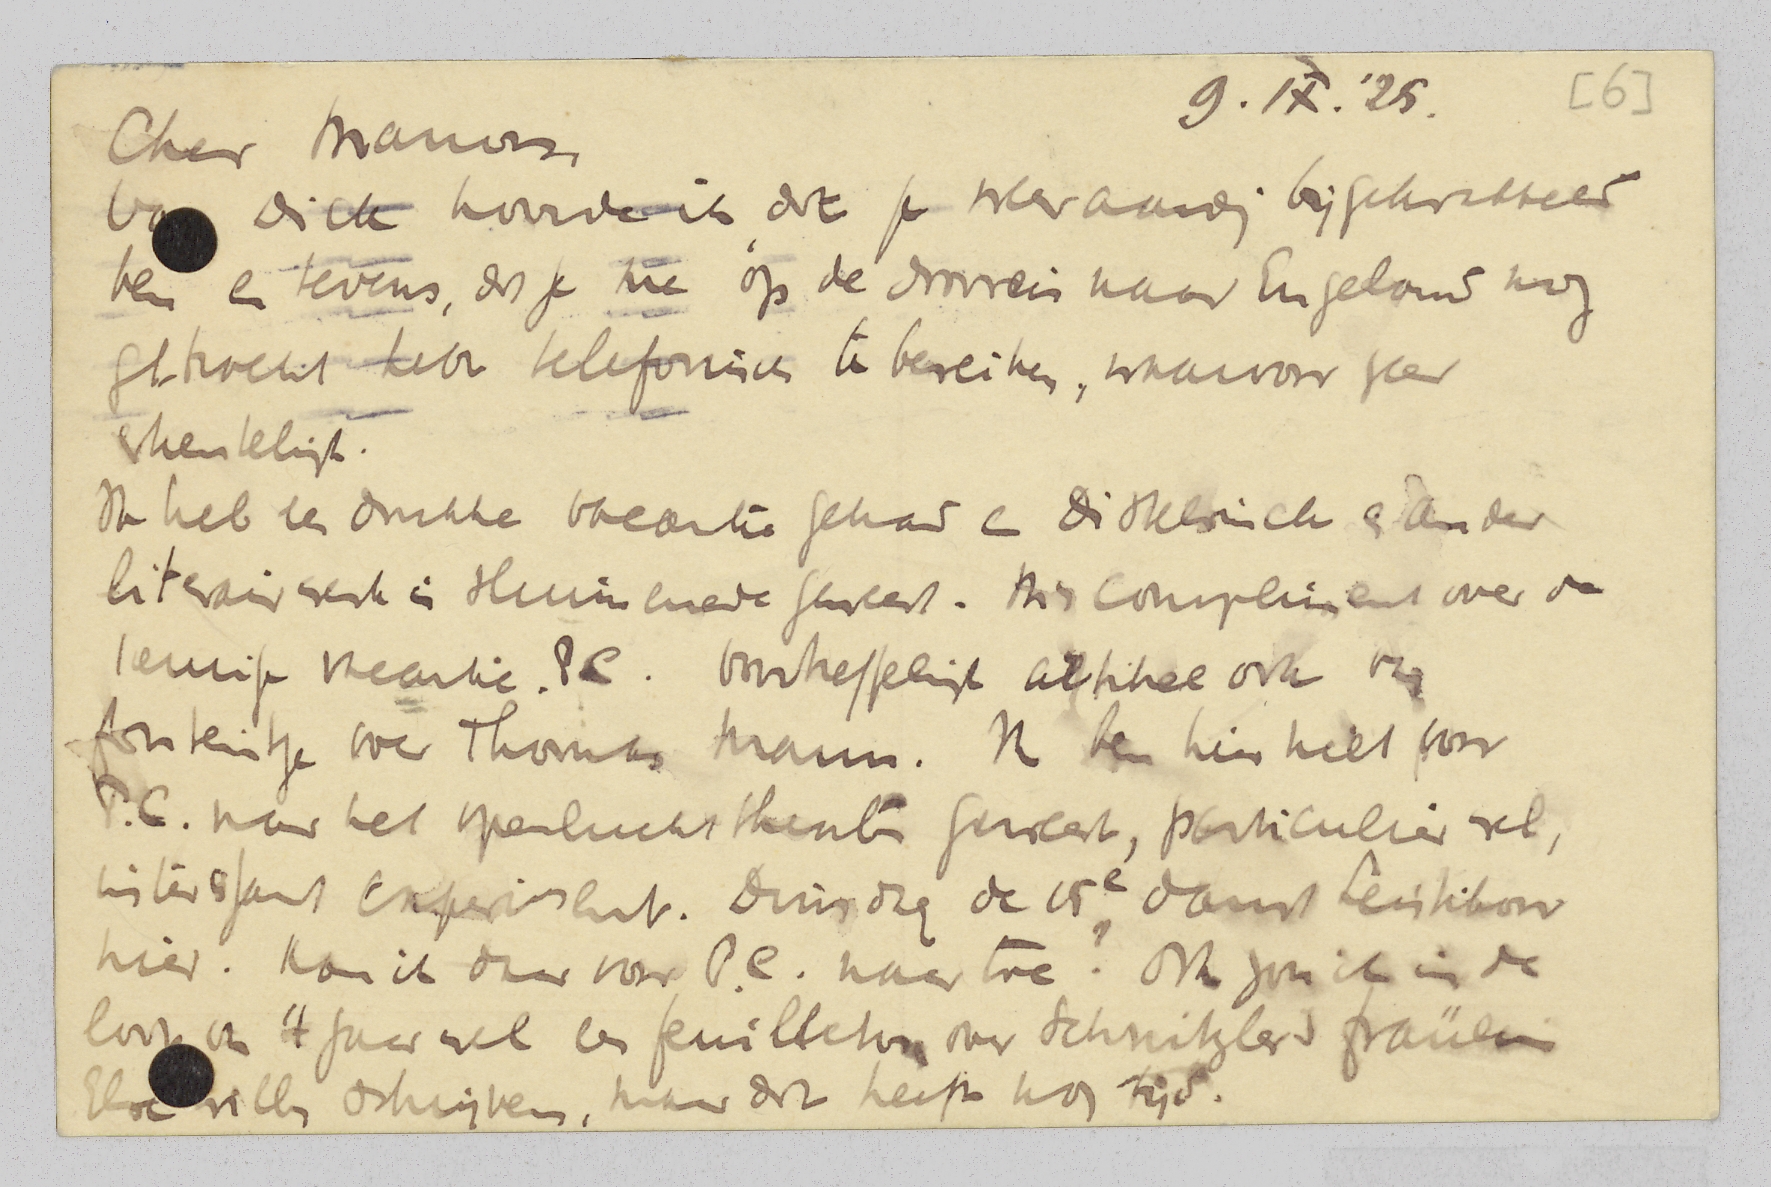 9.IX.'25. [6]
Cher Marman
Van Dick hoorde ik, dat je weer aardig bijgekrabbeld
ben en tevens, dat je me op de doorreis naar Engeland nog
getracht hebt telefonisch te bereiken, waarvoor zeer
erkentelijk.
Ik heb een drukke vacantie gehad en Dickensiek en ander
literair werk in geweest. Mijn compliment over de
vacantie P.C. Voortreffelijk artikel ook van
Fonteintje over Thomas Mann. Ik ben hier niet voor
P.C. naar het openluchttheater geweest, particulier wel,
interessant experiment. Dinsdag de 15e danst Leistikow
hier. Kan ik daar voor P.C. naar toe? Ook zou ik in de
loop van 't jaar wel een feuilleton over Schnitzler's Fräulein
Else willen schrijven, maar dat heeft nog tijd.